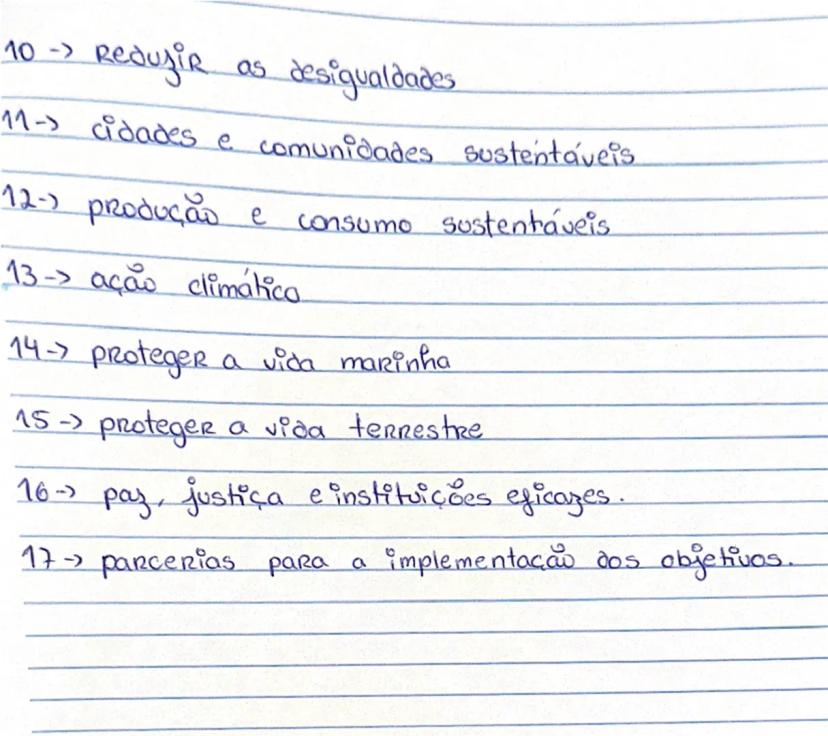 10 -> Reduzir as desigualdades
11 -> cidades e comunidades sustentáveis
12 -> produção e consumo sustentáveis
13 -> ação climático
14 -> proteger a vida marinha
15 -> proteger a vida terrestre
16 -> paz, justiça e instituições eficazes.
17 -> parcerias para a implementação dos objetivos.